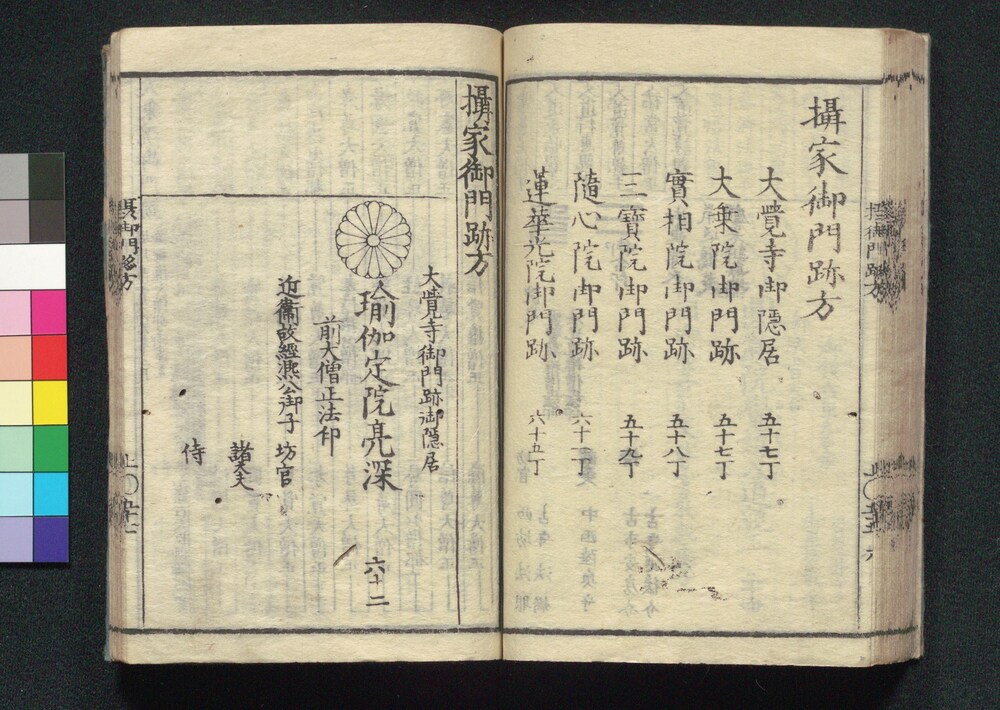 攝家御門跡方
大覺寺御隱居 五十七丁
大乗院御門跡 五十七丁
實相院御門跡 五十八丁
三寶院御門跡 五十九丁
隨心院御門跡 六十二丁
蓮華光院御門跡 六十五丁
攝家御門跡方
大覺寺御門跡御隱居
瑜伽定院亮深 六十二
前大僧正法印
近衞故經凞公御子 坊官
諸大夫
侍